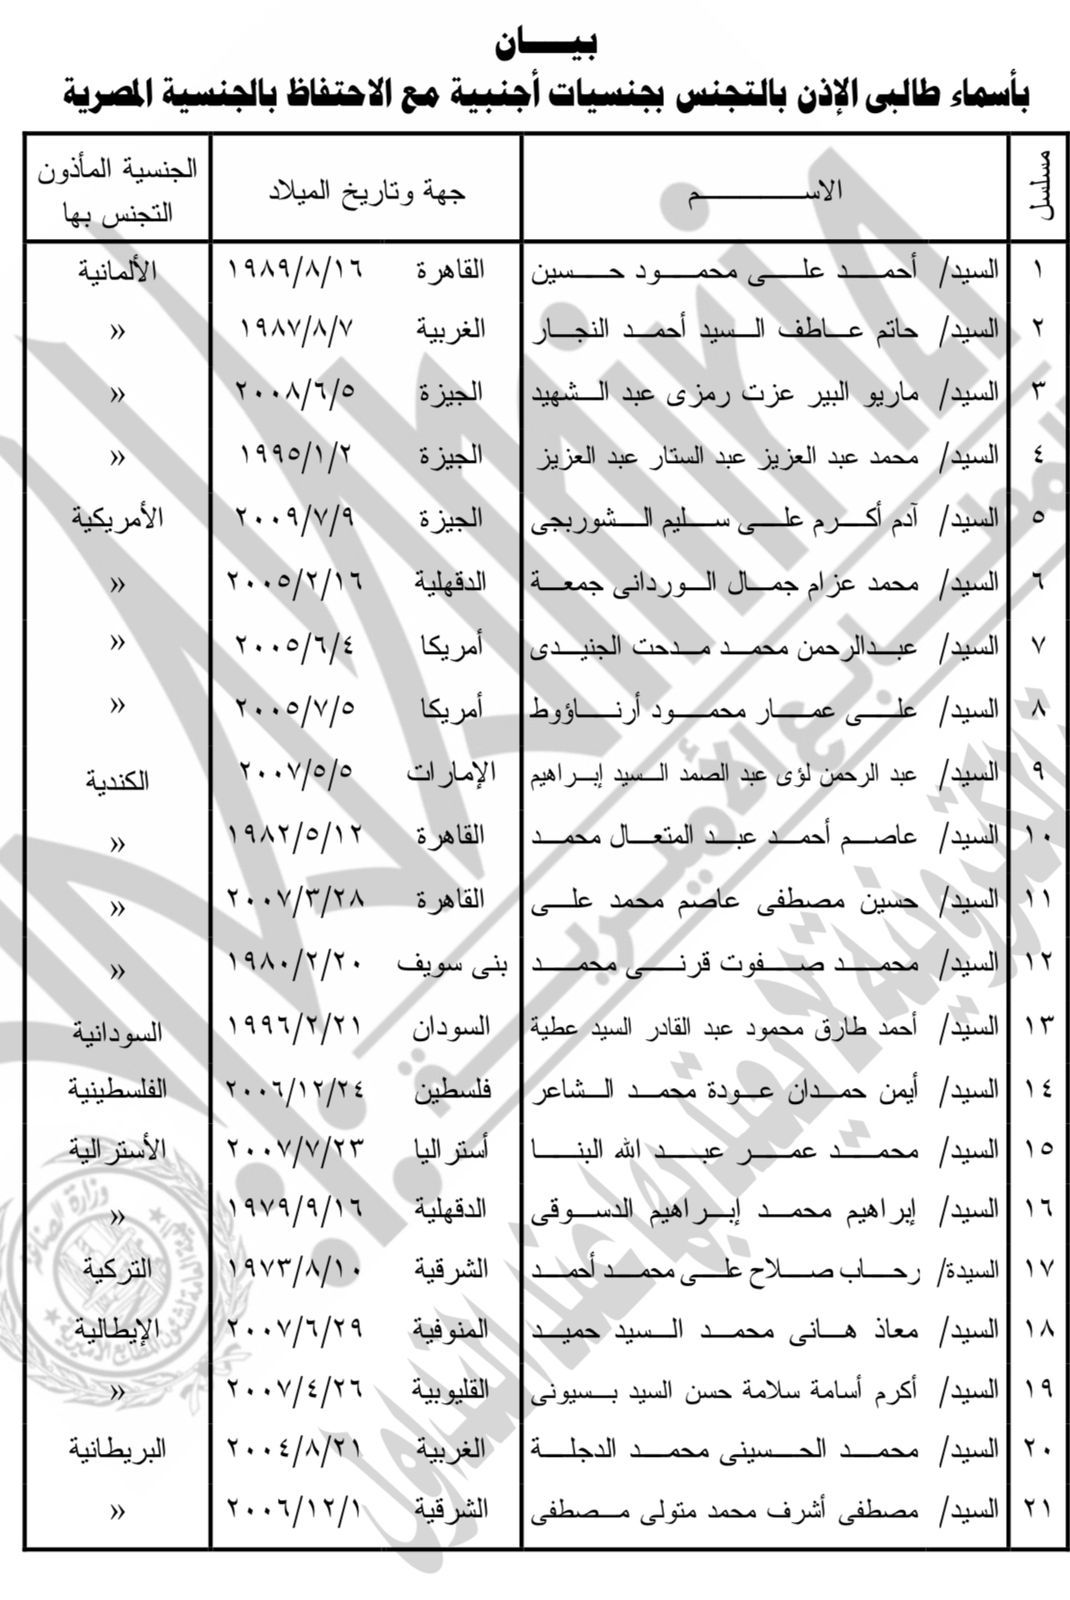 بيـــــان
بأسماء طالبى الإذن بالتجنس بجنسيات أجنبية مع الاحتفاظ بالجنسية المصرية
مسلسل الاســـــــــــم جهة وتاريخ الميلاد الجنسية المأذون التجنس بها
١ السيد/ أحمد على محمود حسين القاهرة ١٩٨٩/٨/١٦ الألمانية
٢ السيد/ حاتم عاطف السيد أحمد النجار الغربية ١٩٨٧/٨/٧ »
٣ السيد/ ماريو البير عزت رمزى عبد الشهيد الجيزة ٢٠٠٨/٦/٥ »
٤ السيد/ محمد عبد العزيز عبد الستار عبد العزيز الجيزة ١٩٩٥/١/٢ »
٥ السيد/ آدم أكرم على سليم الشوربجى الجيزة ٢٠٠٩/٧/٩ الأمريكية
٦ السيد/ محمد عزام جمال الوردانى جمعة الدقهلية ٢٠٠٥/٢/١٦ »
٧ السيد/ عبدالرحمن محمد مدحت الجنيدى أمريكا ٢٠٠٥/٦/٤ »
٨ السيد/ على عمار محمود أرناؤوط أمريكا ٢٠٠٥/٧/٥ »
٩ السيد/ عبد الرحمن لؤى عبد الصمد السيد إبراهيم الإمارات ٢٠٠٧/٥/٥ الكندية
١٠ السيد/ عاصم أحمد عبد المتعال محمد القاهرة ١٩٨٢/٥/١٢ »
١١ السيد/ حسين مصطفى عاصم محمد على القاهرة ٢٠٠٧/٣/٢٨ »
١٢ السيد/ محمد صفوت قرنى محمد بنى سويف ١٩٨٠/٢/٢٠ »
١٣ السيد/ أحمد طارق محمود عبد القادر السيد عطية السودان ١٩٩٦/٢/٢١ السودانية
١٤ السيد/ أيمن حمدان عودة محمد الشاعر فلسطين ٢٠٠٦/١٢/٢٤ الفلسطينية
١٥ السيد/ محمد عمر عبد الله البنا أستراليا ٢٠٠٧/٧/٢٣ الأسترالية
١٦ السيد/ إبراهيم محمد إبراهيم الدسوقى الدقهلية ١٩٧٩/٩/١٦ »
١٧ السيدة/ رحاب صلاح على محمد أحمد الشرقية ١٩٧٣/٨/١٠ التركية
١٨ السيد/ معاذ هانى محمد السيد حميد المنوفية ٢٠٠٧/٦/٢٩ الإيطالية
١٩ السيد/ أكرم أسامة سلامة حسن السيد بسيونى القليوبية ٢٠٠٧/٤/٢٦ »
٢٠ السيد/ محمد الحسينى محمد الدجلة الغربية ٢٠٠٤/٨/٢١ البريطانية
٢١ السيد/ مصطفى أشرف محمد متولى مصطفى الشرقية ٢٠٠٦/١٢/١ »